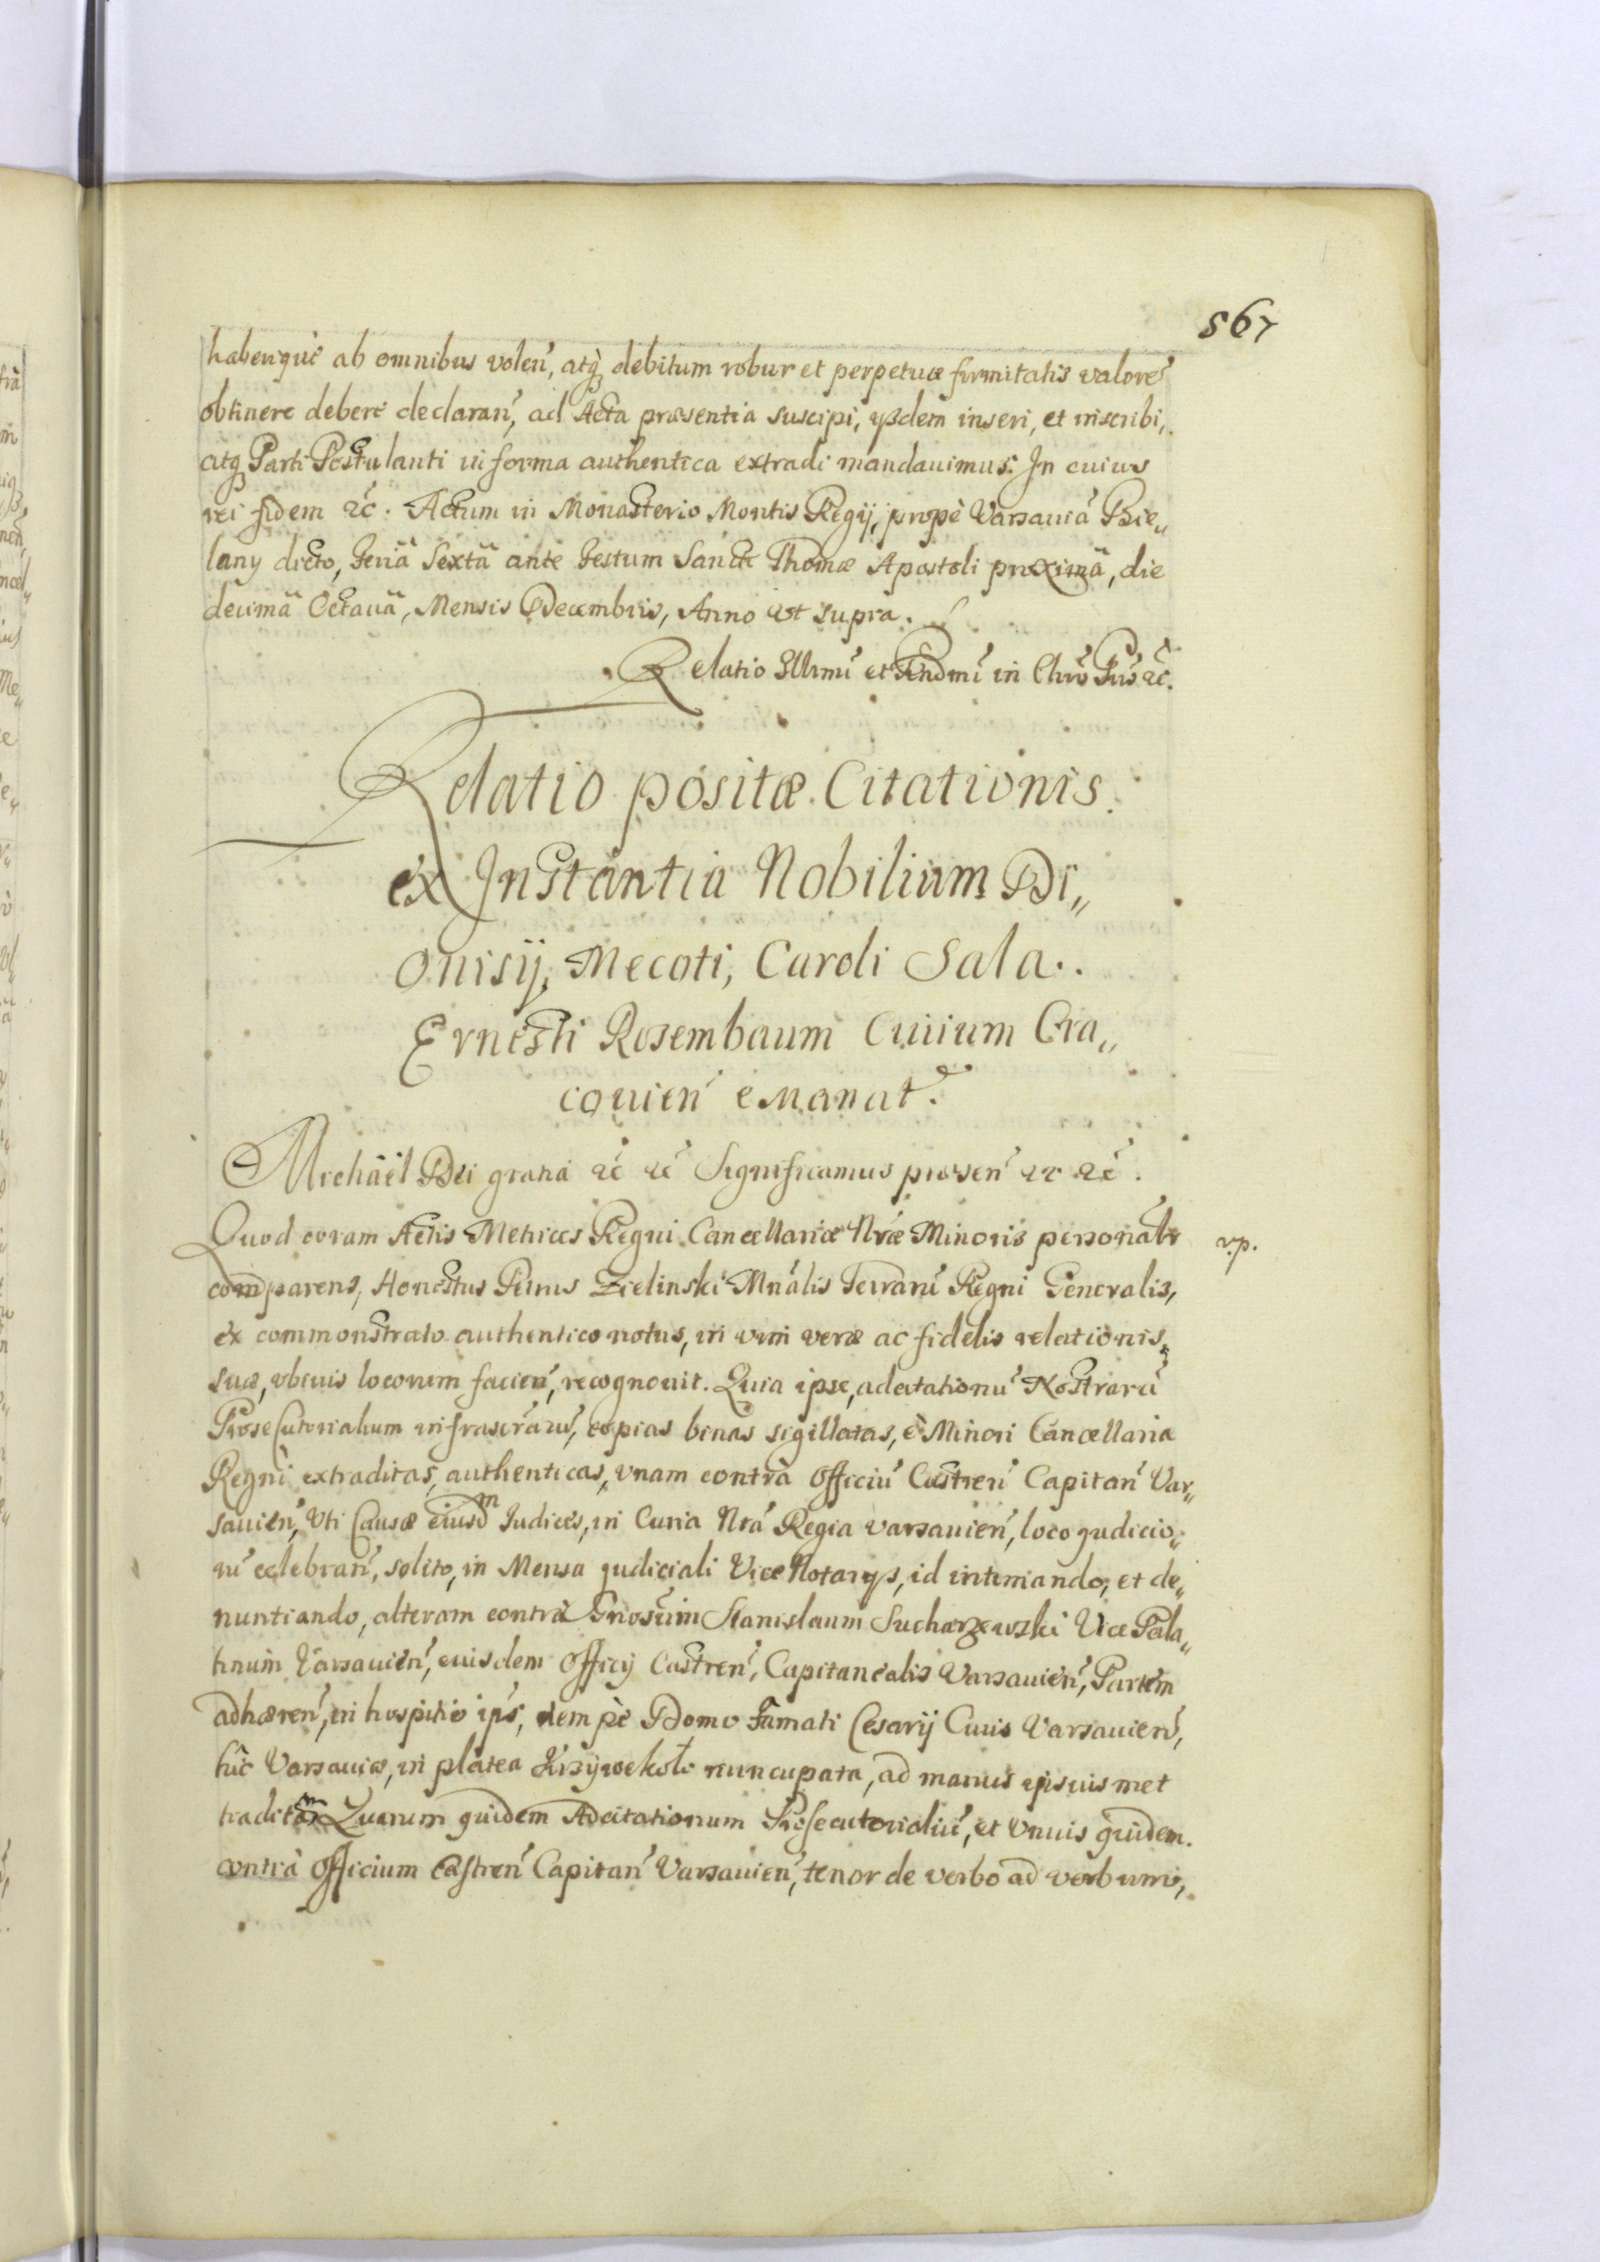 567
habenque ab omnibus volen̄, atq̀ꝫ debitum robur et perpetuæ firmitatis valore᷃
obtinere debere declaran̄, ad Acta præsentia suscipi, ijsdem inseri, et inscribi,
atqꝫ Parti Postulanti in forma authentica extradi mandauimus. In cuius
rei fidem &c̄. Actum in Monasterio Montis Regij, propè Varsauiā Bie„
lany dicto, Feriā Sextā ante Festum Sancti Thomæ Apostoli proximā, die
decimā Octauā, Mensis Decembris, Anno ut supra.
Relatio Illrmi et Rndmi in Chro Pris &c̄.
Relatio positæ Citationis
ex Instantia Nobilium Di„
onisij, Mecoti, Caroli Sala.
Ernesti Rosembaum Ciuium Cra„
couien̄ emanat.
Michäel Dei gratiâ &c̄ &c̄ Significamus præsen̄ &c &c̄.
Quod coram Actis Metrices Regni Cancellariæ Nrǣ Minoris personalr̄
v.p.
comparens, Honestus Petrus Zielinski Mnālis Terrarū Regni Generalis,
ex commonstrato authentico notus, in vim veræ ac fidelis relationis
suæ, vbiuis locorum facien̄, recognouit. Quia ipse, adcitationū Nostrarū
Prosecutorialium infrascrarū, copias binas sigillatas, è Minori Cancellaria
Regni extraditas, authenticas, vnam contrà Officiū Castren̄ Capitan̄ Var„
sauien̄, Vti Causæ eiusdm Iudices, in Curia Nrā Regia Varsauien̄, loco judicio„
rū celebran̄, solito, in Mensa judiciali Vice Notarijs, id intimando, et de„
nuntiando, alteram contrà Gnosum Stanislaum Sucharzewski Vice Pala„
tinum Varsauien̄, euisdem Officij Castren̄, Capitanealis Varsauien̄, Partem
adhæren̄, in hospitio ips̄, nempè Domo Famati Cesarij Ciuis Varsauien̄,
hìc Varsauiæ, in platea Krzywekoło nuncupata, ad manus ipsiusmet
traditam Quarum quidem Adcitationum Prosecutorialiū, et Vnuis quidem
contrà Officium Castren̄ Capitan̄ Varsauien̄, tenor de verbo ad verbum,